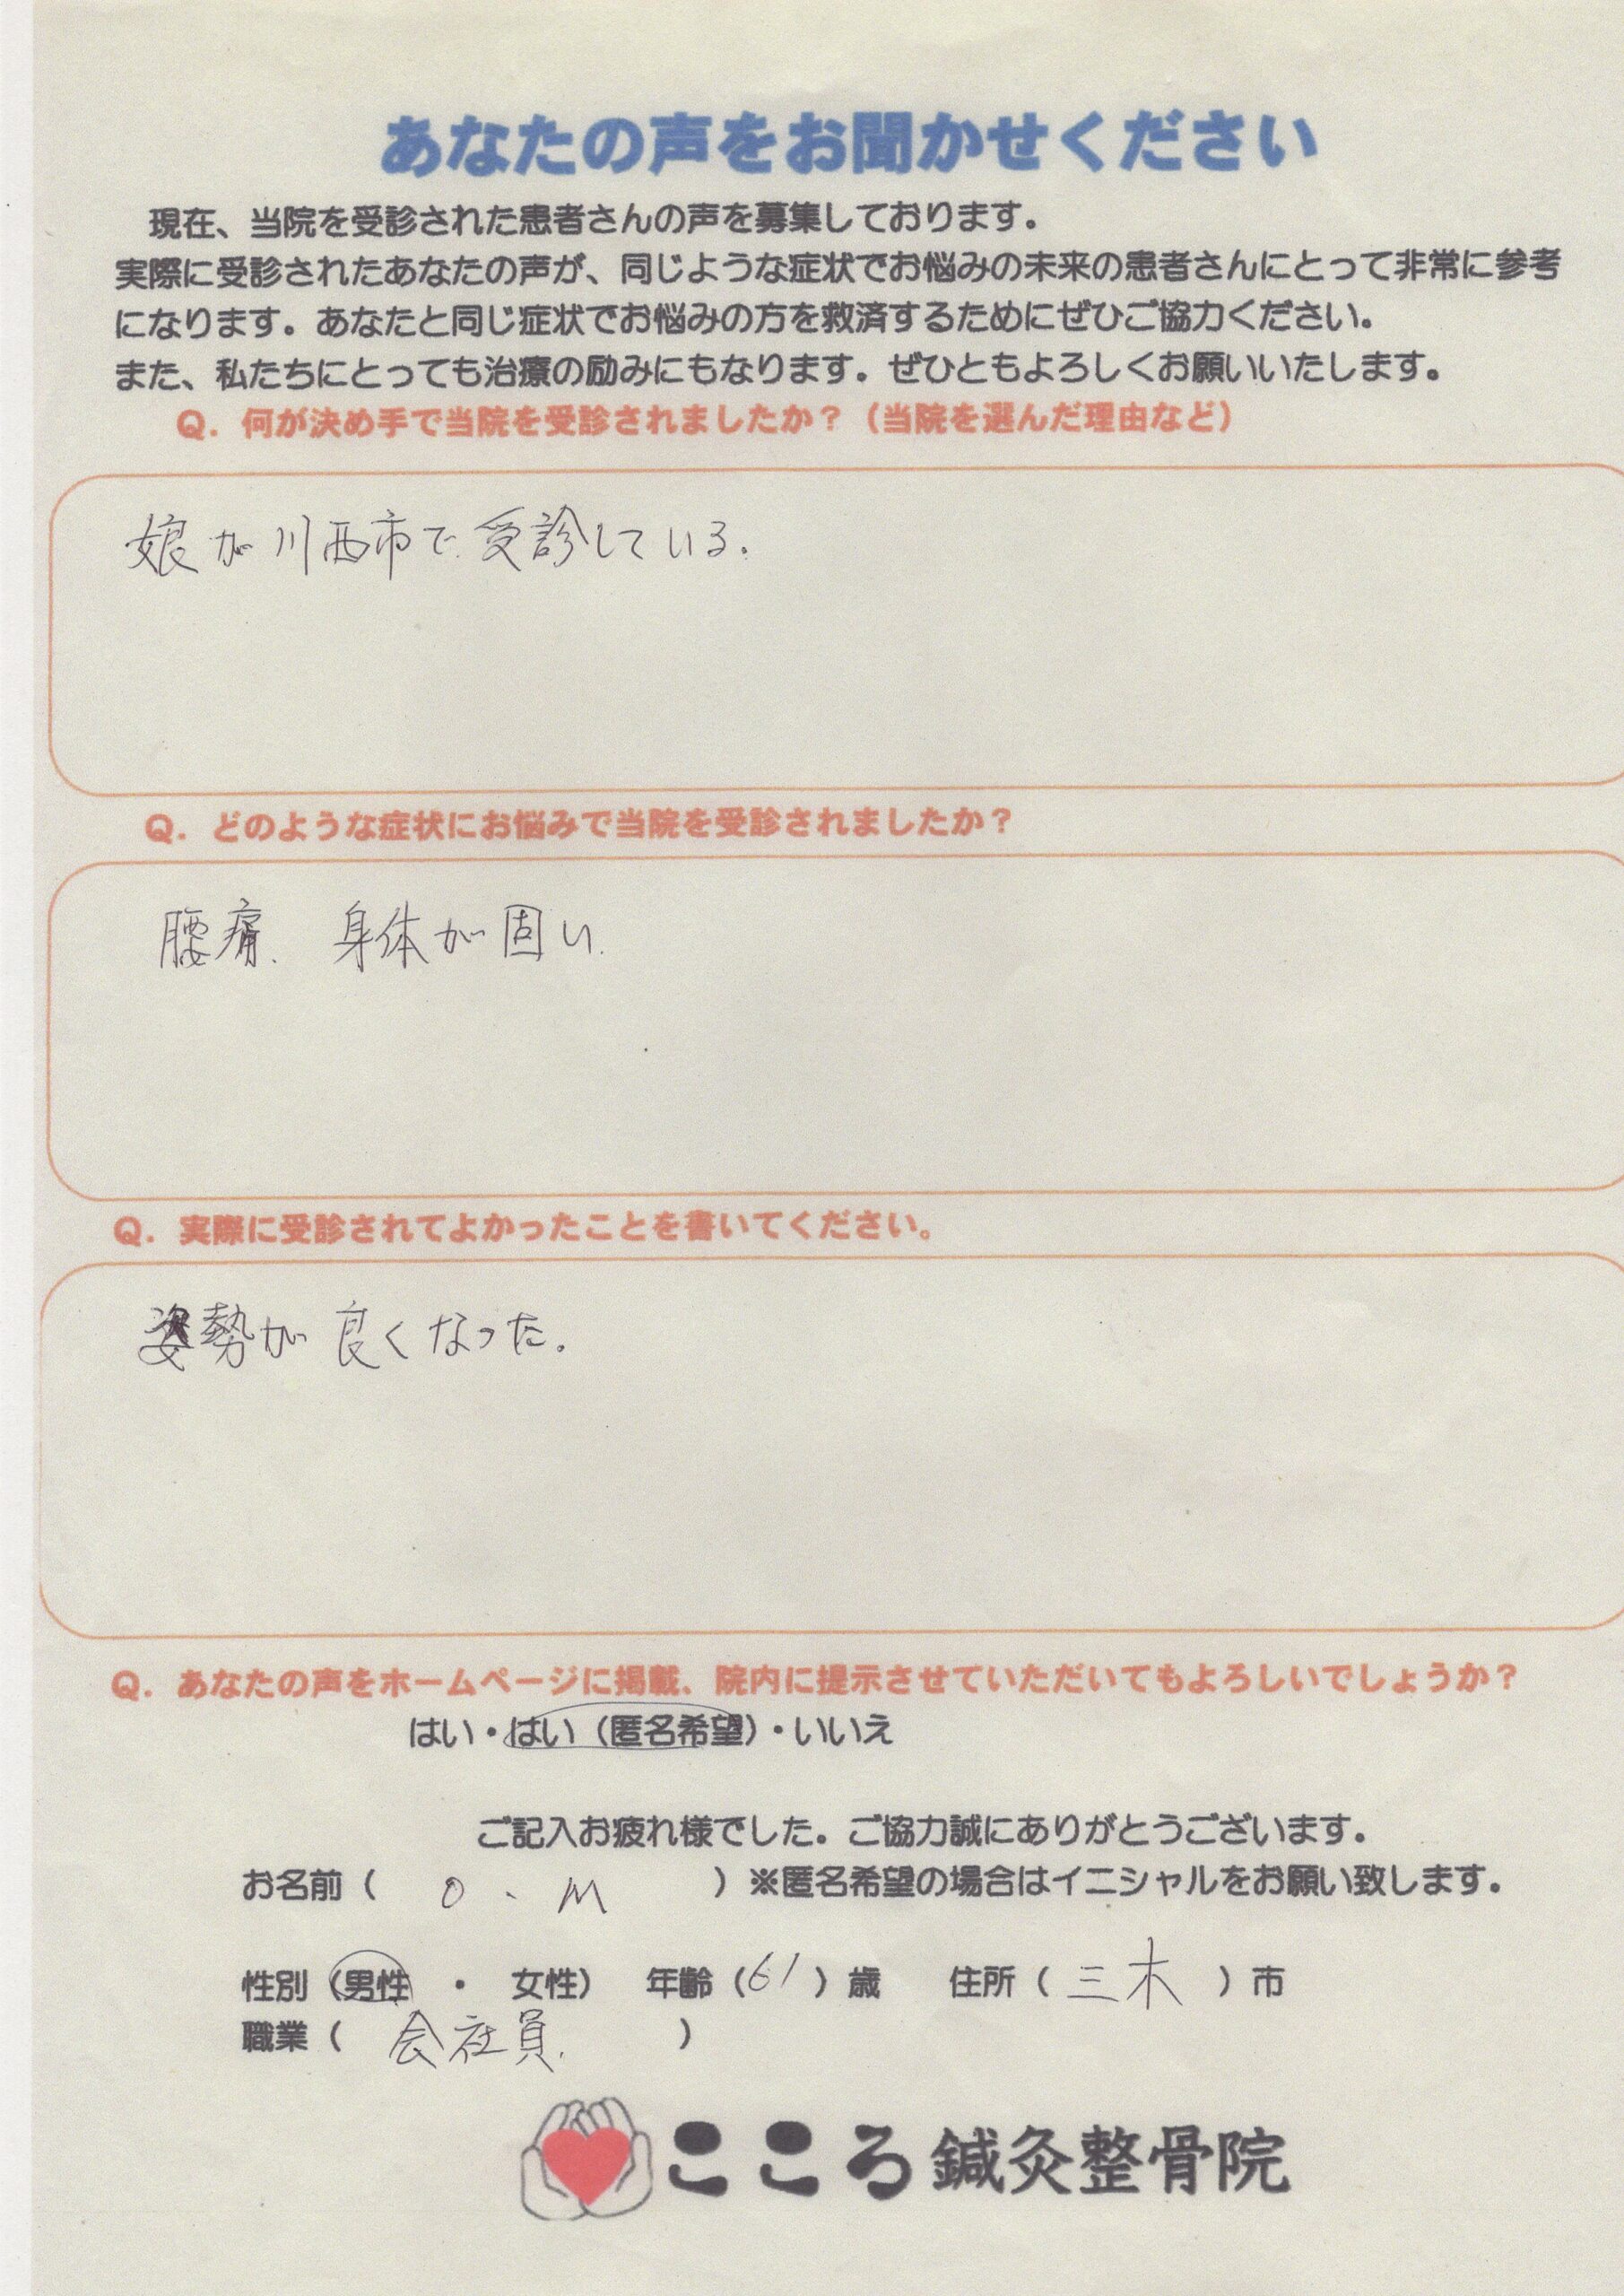 あなたの声をお聞かせください
現在、当院を受診された患者さんの声を募集しております。
実際に受診されたあなたの声が、同じような症状でお悩みの未来の患者さんにとって非常に参考
になります。あなたと同じ症状でお悩みの方を救済するためにぜひご協力ください。
また、私たちにとっても治療の励みにもなります。ぜひともよろしくお願いいたします。
Q. 何が決め手で当院を受診されましたか？（当院を選んだ理由など）
娘が川西市で受診している.
Q. どのような症状にお悩みで当院を受診されましたか？
腰痛. 身体が固い.
Q. 実際に受診されてよかったことを書いてください。
姿勢が良くなった.
Q. あなたの声をホームページに掲載、院内に提示させていただいてもよろしいでしょうか？
はい・はい（匿名希望）・いいえ
ご記入お疲れ様でした。ご協力誠にありがとうございます。
お名前（ O . M ）※匿名希望の場合はイニシャルをお願い致します。
性別（男性 ・ 女性） 年齢（61）歳 住所（ 三木 ）市
職業（ 会社員. ）
こころ鍼灸整骨院